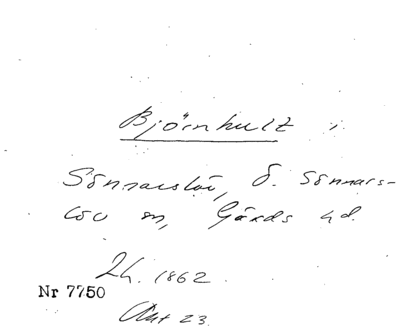 Björnhult i
Sönnarslöv, Ö. Sönnars-
löv sn, Gärds hd.
Lh. 1862
Nr 7750
Akt 23.